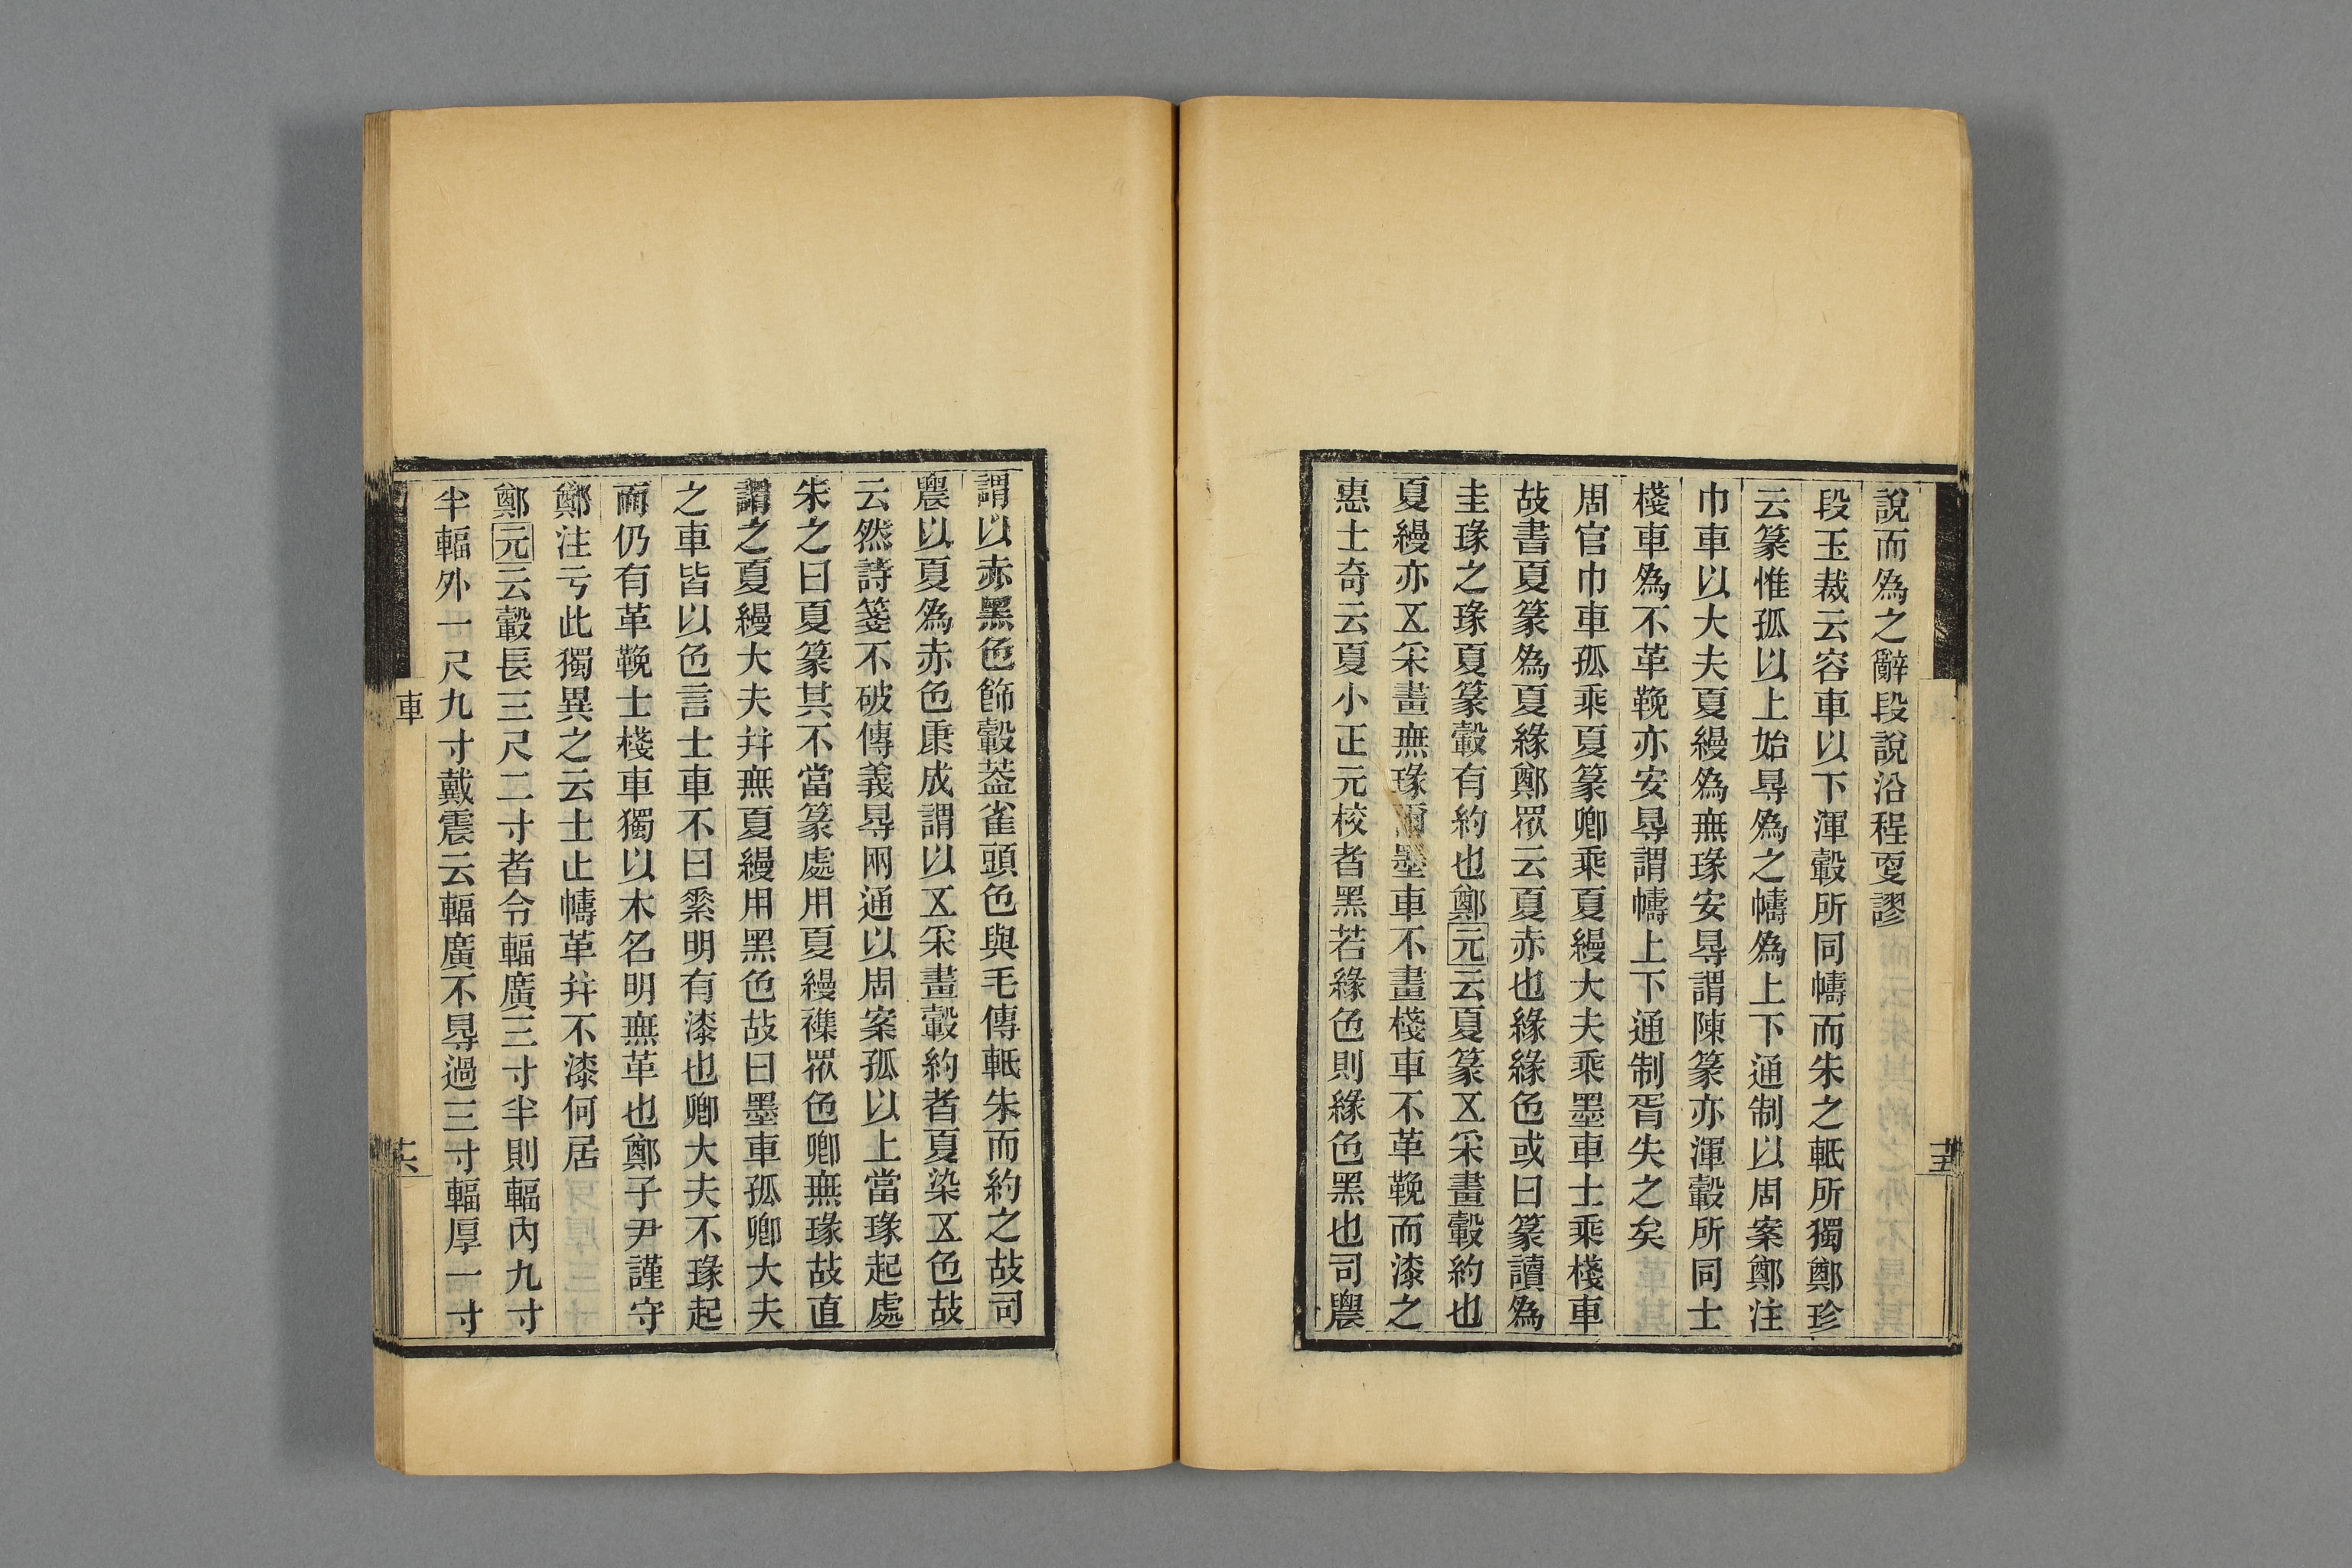 說而為之辭段說沿程㪅謬
段玉裁云容車以下渾轂所同幬而朱之軝所獨鄭珍
云篆惟孤以上始㝵為之幬為上下通制以周案鄭注
巾車以大夫夏縵為無瑑安㝵謂陳篆亦渾轂所同士
棧車為不革鞔亦安㝵謂幬上下通制胥失之矣
周官巾車孤乘夏篆卿乘夏縵大夫乘墨車士乘棧車
故書夏篆為夏緣鄭眾云夏赤也緣緣色或曰篆讀為
圭瑑之瑑夏篆轂有約也鄭元云夏篆五采畫轂約也
夏縵亦五采畫無瑑爾墨車不畫棧車不革鞔而漆之
惠士奇云夏小正元校者黑若緣色則緣色黑也司農
謂以赤黑色飾轂葢雀頭色與毛傳軝朱而約之故司
農以夏為赤色康成謂以五采畫轂約者夏染五色故
云然詩箋不破傳義㝵兩通以周案孤以上當瑑起處
朱之曰夏篆其不當篆處用夏縵襍眾色卿無瑑故直
謂之夏縵大夫并無夏縵用黑色故曰墨車孤卿大夫
之車皆以色言士車不曰䰍明有漆也卿大夫不瑑起
而仍有革鞔士棧車獨以木名明無革也鄭子尹謹守
鄭注亏此獨異之云士止幬革并不漆何居
鄭元云轂長三尺二寸者令輻廣三寸半則輻內九寸
半輻外一尺九寸戴震云輻廣不㝵過三寸輻厚一寸
車
十六